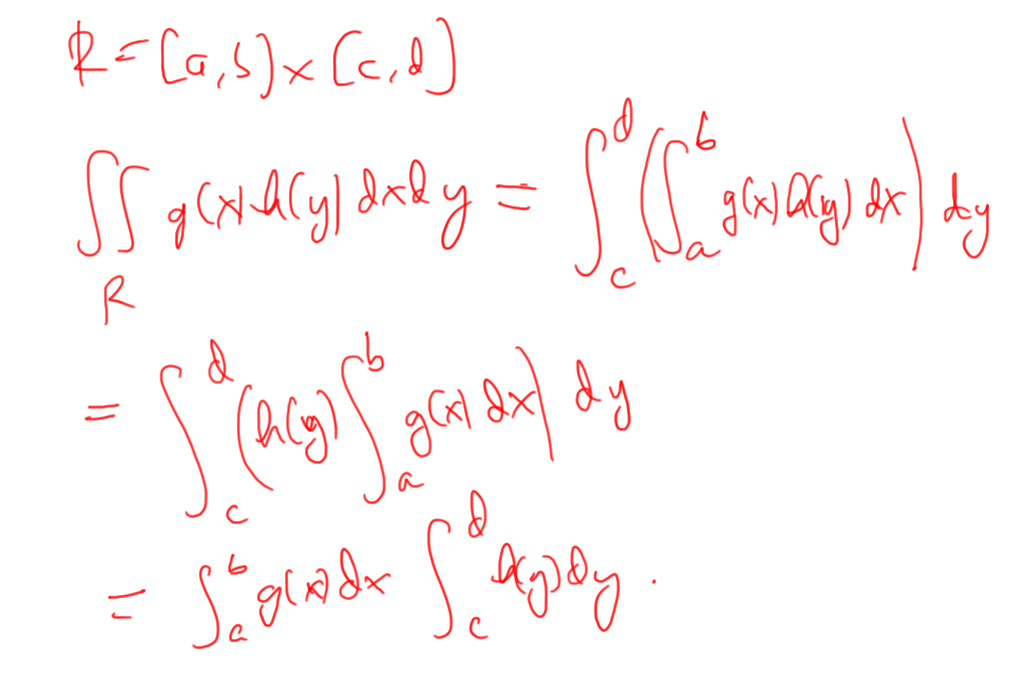 R = [a,b] × [c,d]
∬_R g(x) h(y) dx dy = ∫_c^d (∫_a^b g(x) h(y) dx) dy
= ∫_c^d (h(y) ∫_a^b g(x) dx) dy
= ∫_a^b g(x) dx ∫_c^d h(y) dy .